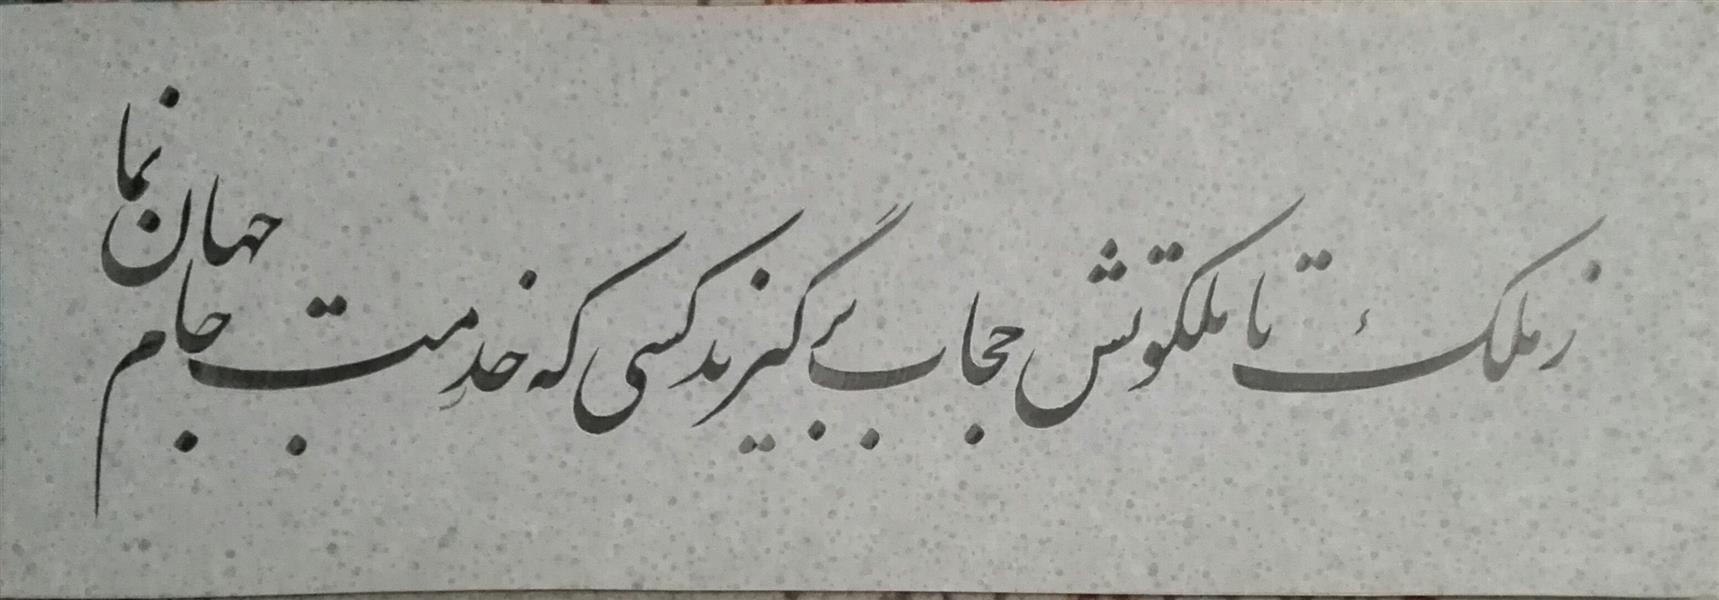 ز ملک تا ملکوتش حجاب برگیرند کسی که خدمت جام جهان نما